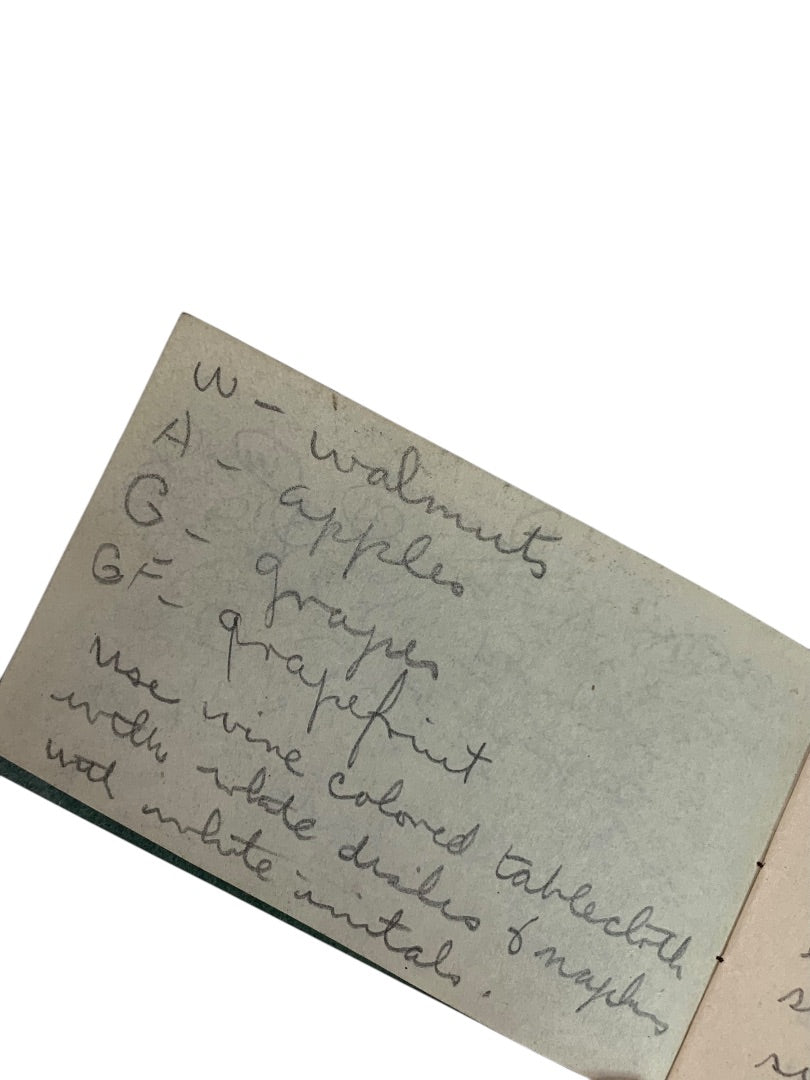 W - walnuts
A - apples
G - grapes
GF - grapefruit
use wine colored tablecloth
with white dishes & napkins
with white initals.